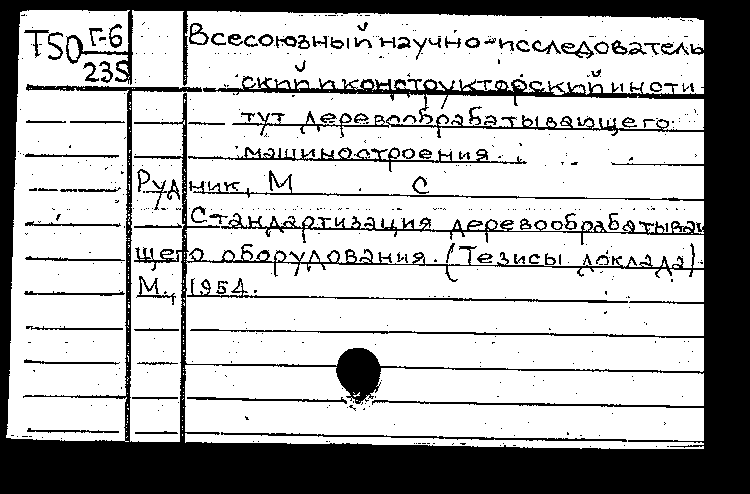 Т50 Г-6
235
Всесоюзный научно-исследователь
ский и конструкторский инсти-
тут деревообрабатывающего
машиностроения.
Рудник, М С
Стандартизация деревообрабатываю
щего оборудования. (Тезисы доклада).
М., 1954.